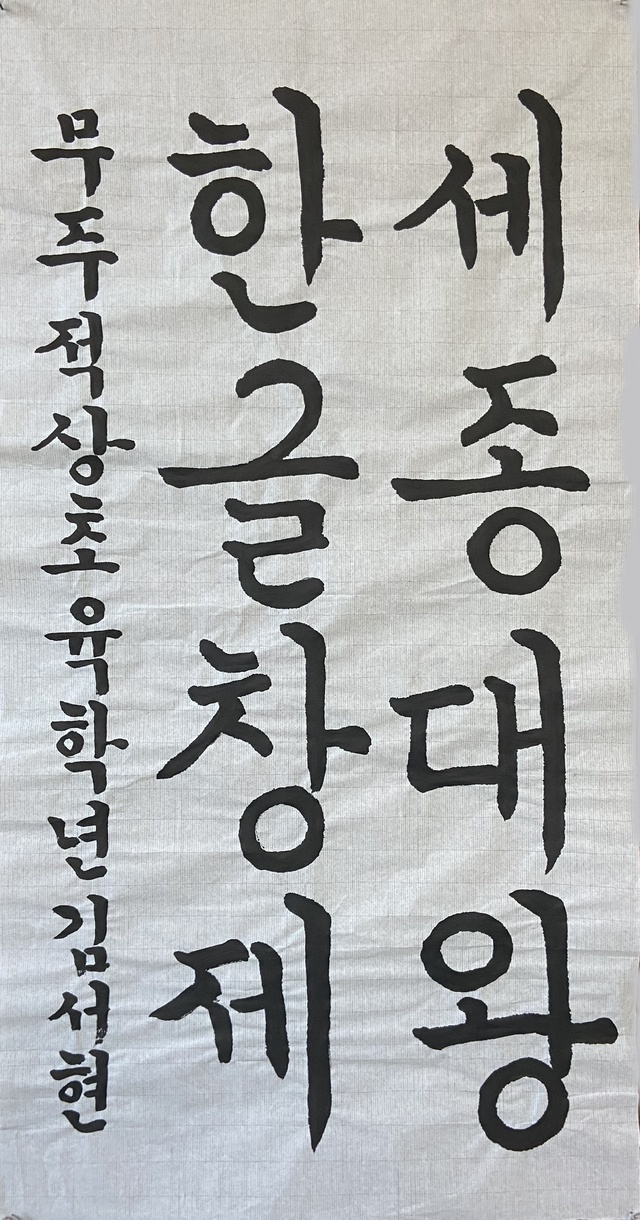 세종대왕
한글창제
무주적상초육학년김서현